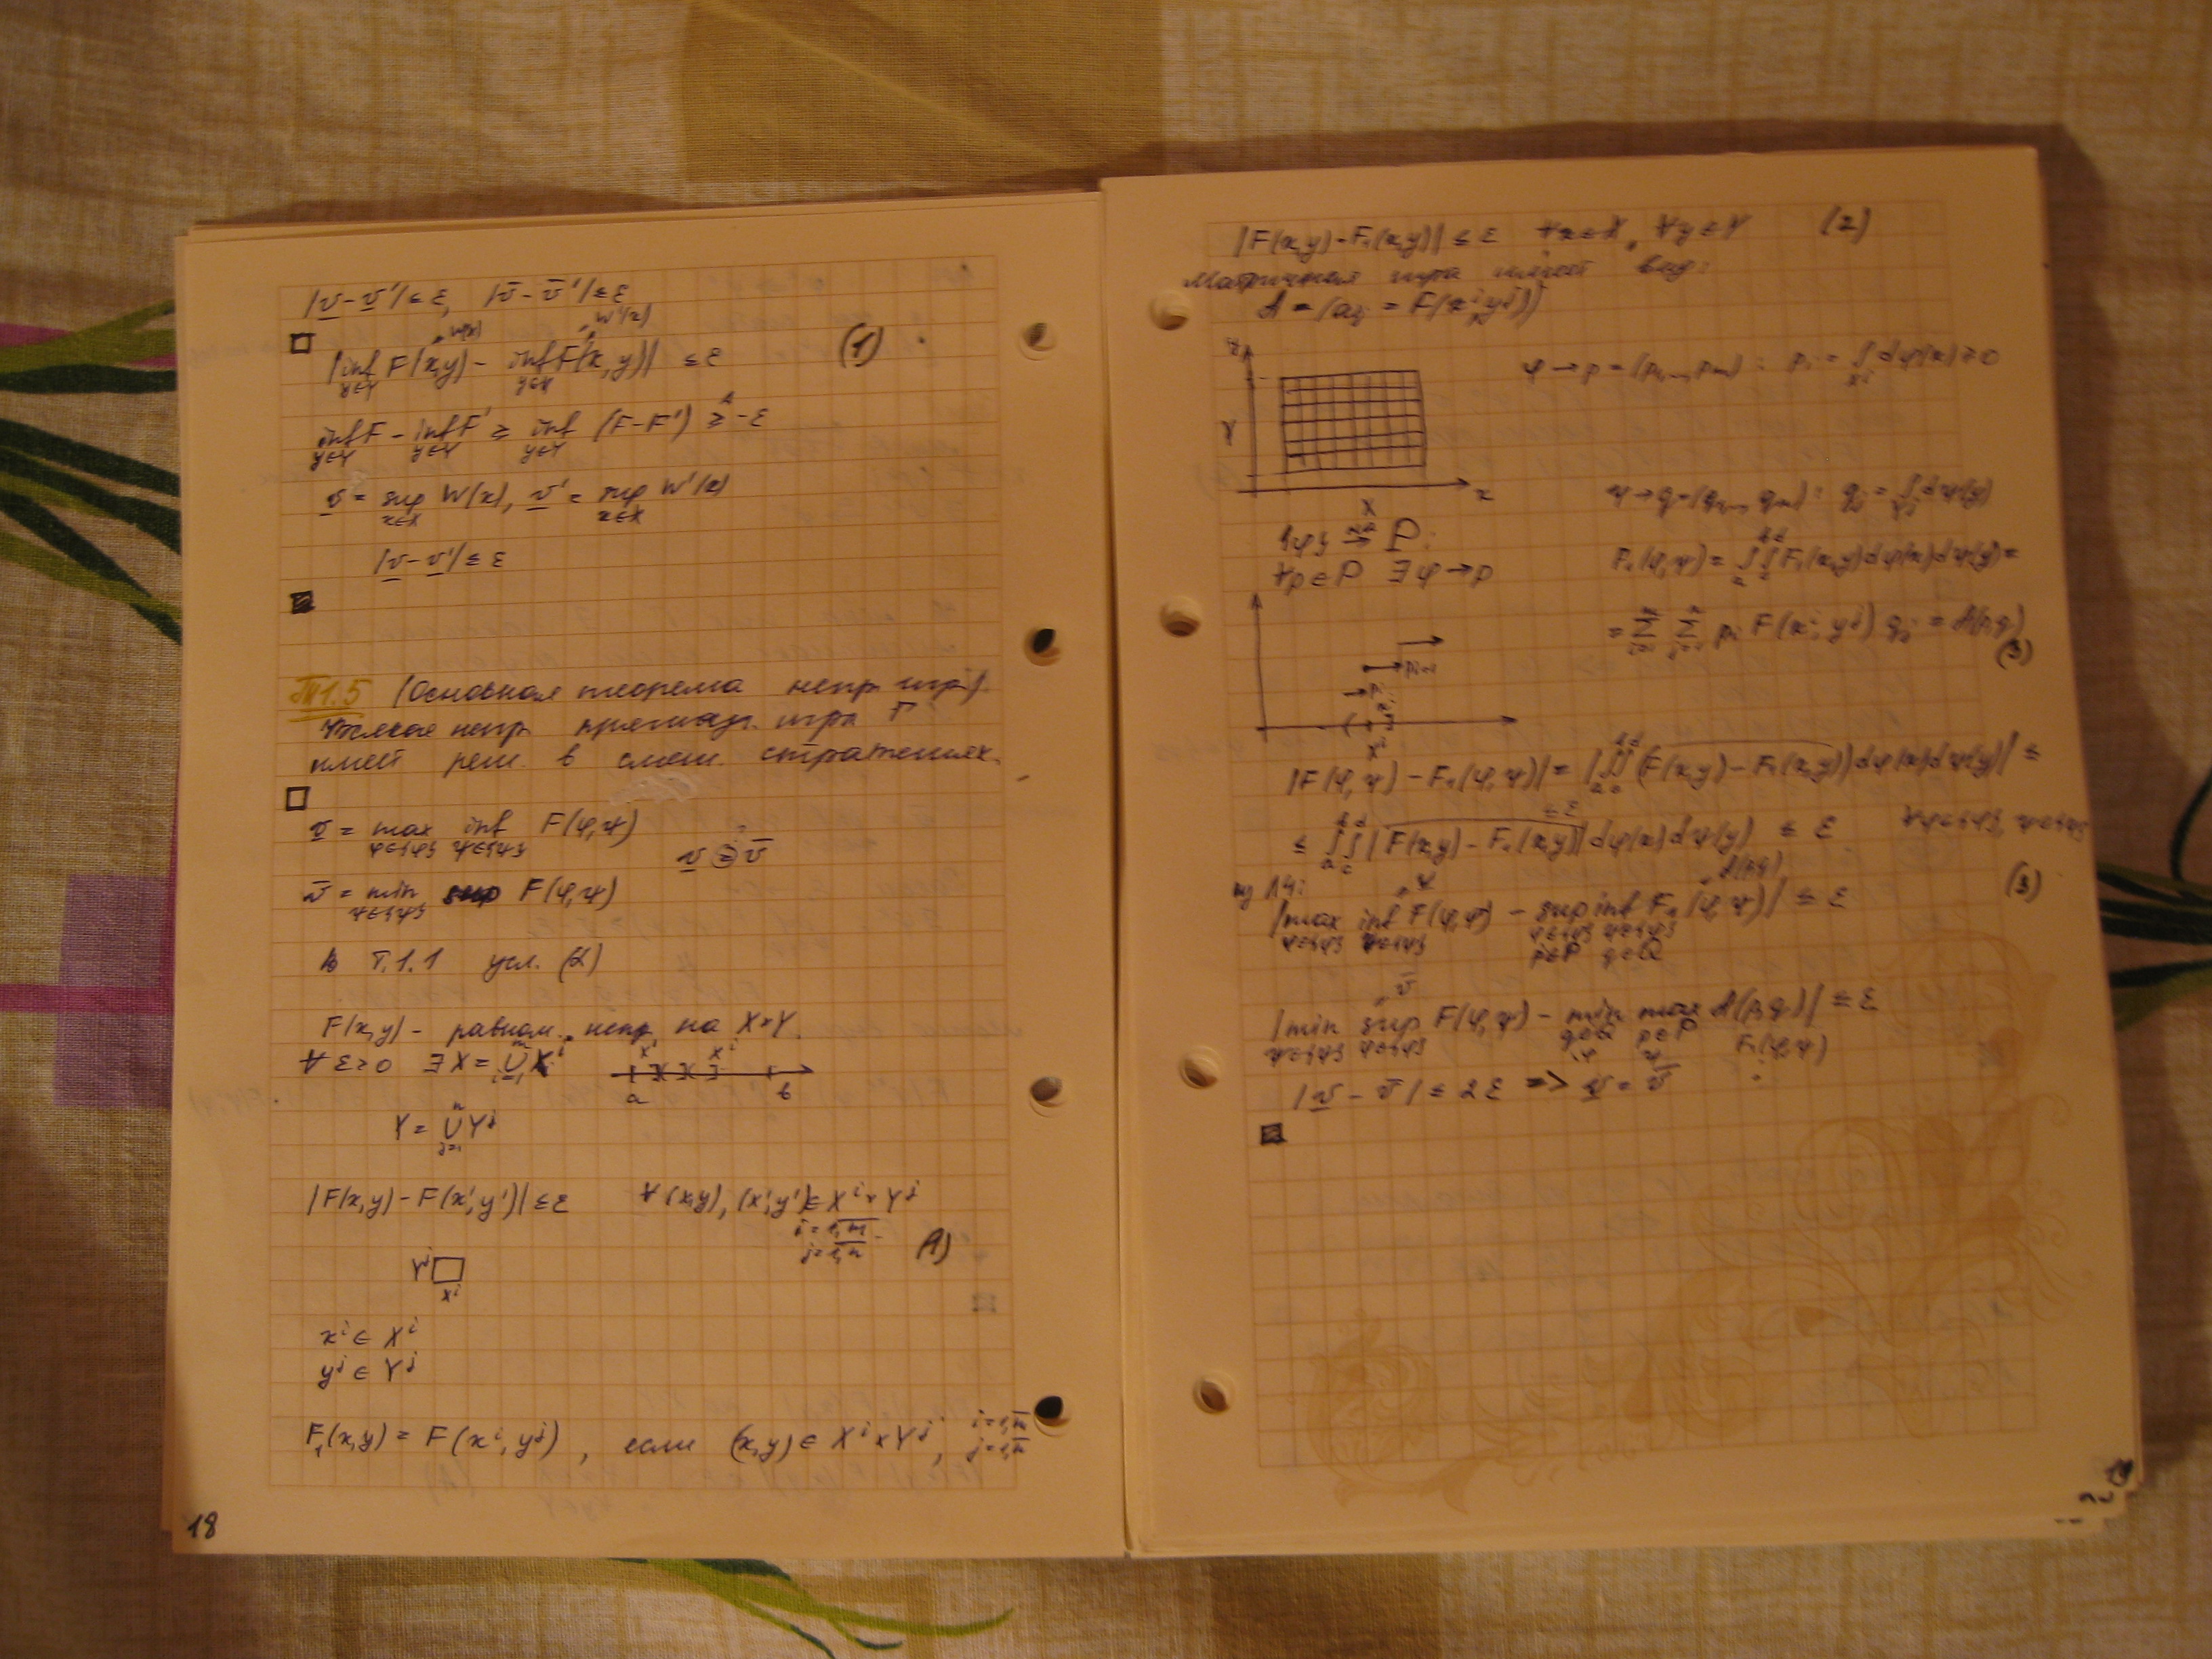 |v̲ - v̲'| ≤ ε, |v̄ - v̄'| ≤ ε
□ W(x) W'(x)
|inf_{y∈Y} F(x,y) - inf_{y∈Y} F'(x,y)| ≤ ε (1)
inf_{y∈Y} F - inf_{y∈Y} F' ≥ inf_{y∈Y} (F-F') ≥ -ε
v̲ = sup_{x∈X} W(x), v̲' = sup_{x∈X} W'(x)
|v̲ - v̲'| ≤ ε
Т1.5 (Основная теорема непр. игр).
Всякая непр. игра Г
имеет реш. в смеш. стратегиях.
□
v̲ = max_{φ∈{φ}} inf_{ψ∈{ψ}} F(φ,ψ)
v̲ = v̄ ?
v̄ = min_{ψ∈{ψ}} sup F(φ,ψ)
В Т.1.1 усл. (2)
F(x,y) - равном. непр. на X×Y.
∀ε>0 ∃X = ⋃_{i=1}^{m} X^i
X^1 X^i
a b
Y = ⋃_{j=1}^{n} Y^j
|F(x,y) - F(x',y')| ≤ ε ∀(x,y), (x',y') ∈ X^i × Y^j
i = 1,m
j = 1,n (1)
Y^j
X^i
x^i ∈ X^i
y^j ∈ Y^j
F_1(x,y) = F(x^i, y^j), если (x,y) ∈ X^i × Y^j, i = 1,m
j = 1,n
18
|F(x,y) - F_1(x,y)| ≤ ε ∀x∈X, ∀y∈Y (2)
Матричная игра имеет вид:
A = (a_ij = F(x^i, y^j))
y
Y
x
X
φ → p = (p_1,...,p_m): p_i = ∫_{X^i} dφ(x) ≥ 0
ψ → q = (q_1,..., q_n): q_j = ∫_{Y^j} dψ(y)
{φ} → P:
∀p∈P ∃φ→p
F_1(φ,ψ) = ∫_a^b ∫_c^d F_1(x,y) dφ(x) dψ(y) =
= Σ_{i=1}^{m} Σ_{j=1}^{n} p_i F(x^i, y^j) q_j = A(p,q)
(3)
p_i
X^i
|F(φ,ψ) - F_1(φ,ψ)| = |∫_a^b ∫_c^d (F(x,y) - F_1(x,y)) dφ(x) dψ(y)| ≤
≤ ε
≤ ∫_a^b ∫_c^d |F(x,y) - F_1(x,y)| dφ(x) dψ(y) ≤ ε ∀φ∈{φ}, ψ∈{ψ}
A(p,q)
(3)
|max_{φ∈{φ}} inf_{ψ∈{ψ}} F(φ,ψ) - sup_{φ∈{φ}} inf_{ψ∈{ψ}} F_1(φ,ψ)| ≤ ε
p∈P q∈Q
v̄
|min_{ψ∈{ψ}} sup_{φ∈{φ}} F(φ,ψ) - min_{q∈Q} max_{p∈P} A(p,q)| ≤ ε
F_1(φ,ψ)
|v̲ - v̄| ≤ 2ε => v̲ = v̄